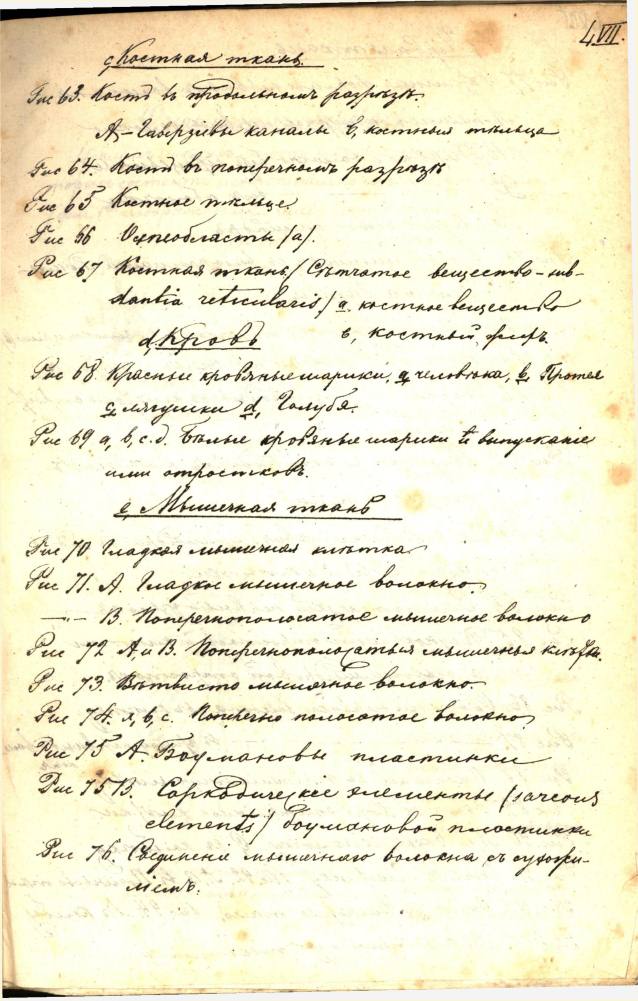 LVII.
c, Костная ткань.
Рис 63. Кость въ продольномъ разрѣзѣ.
А,– Гаверзіевы каналы в, костныя тѣльца
Рис 64. Кость въ поперечномъ разрѣзѣ
Рис 65 Костное тѣльце.
Рис 66 Остеобласты (а).
Рис 67 Костная ткань (Сѣтчатое вещество – sub-
stantia reticularis) a. костное вещество
в, костный жиръ.
d, Кровь
Рис 68. Красные кровяные шарики, a, человѣка, b, Протея
c, лягушки d, Голубя.
Рис 69 a, b, c. d. Бѣлые кровяные шарики и выпусканіе
ими отростковъ.
e, Мышечная ткань
Рис 70 Гладкая мышечная клѣтка
Рис 71. А. Гладкое мышечное волокно.
—"— В. Поперечнополосатое мышечное волокно
Рис 72 А и В. Поперечнополосатыя мышечныя клѣтки.
Рис 73. Вѣтвисто мышечное волокно.
Рис 74. a, b, c. Поперечно полосатое волокно
Рис 75 А. Боумановы пластинки
Рис 75 В. Саркодическіе элементы (sarcous
elements) боумановой пластинки
Рис 76. Соединеніе мышечнаго волокна съ сухожи-
ліемъ.